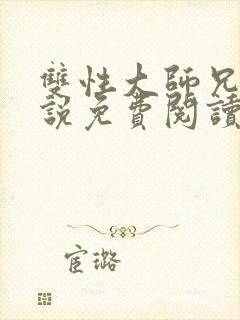 雙性大師兄
說免費閱讀
宦璐